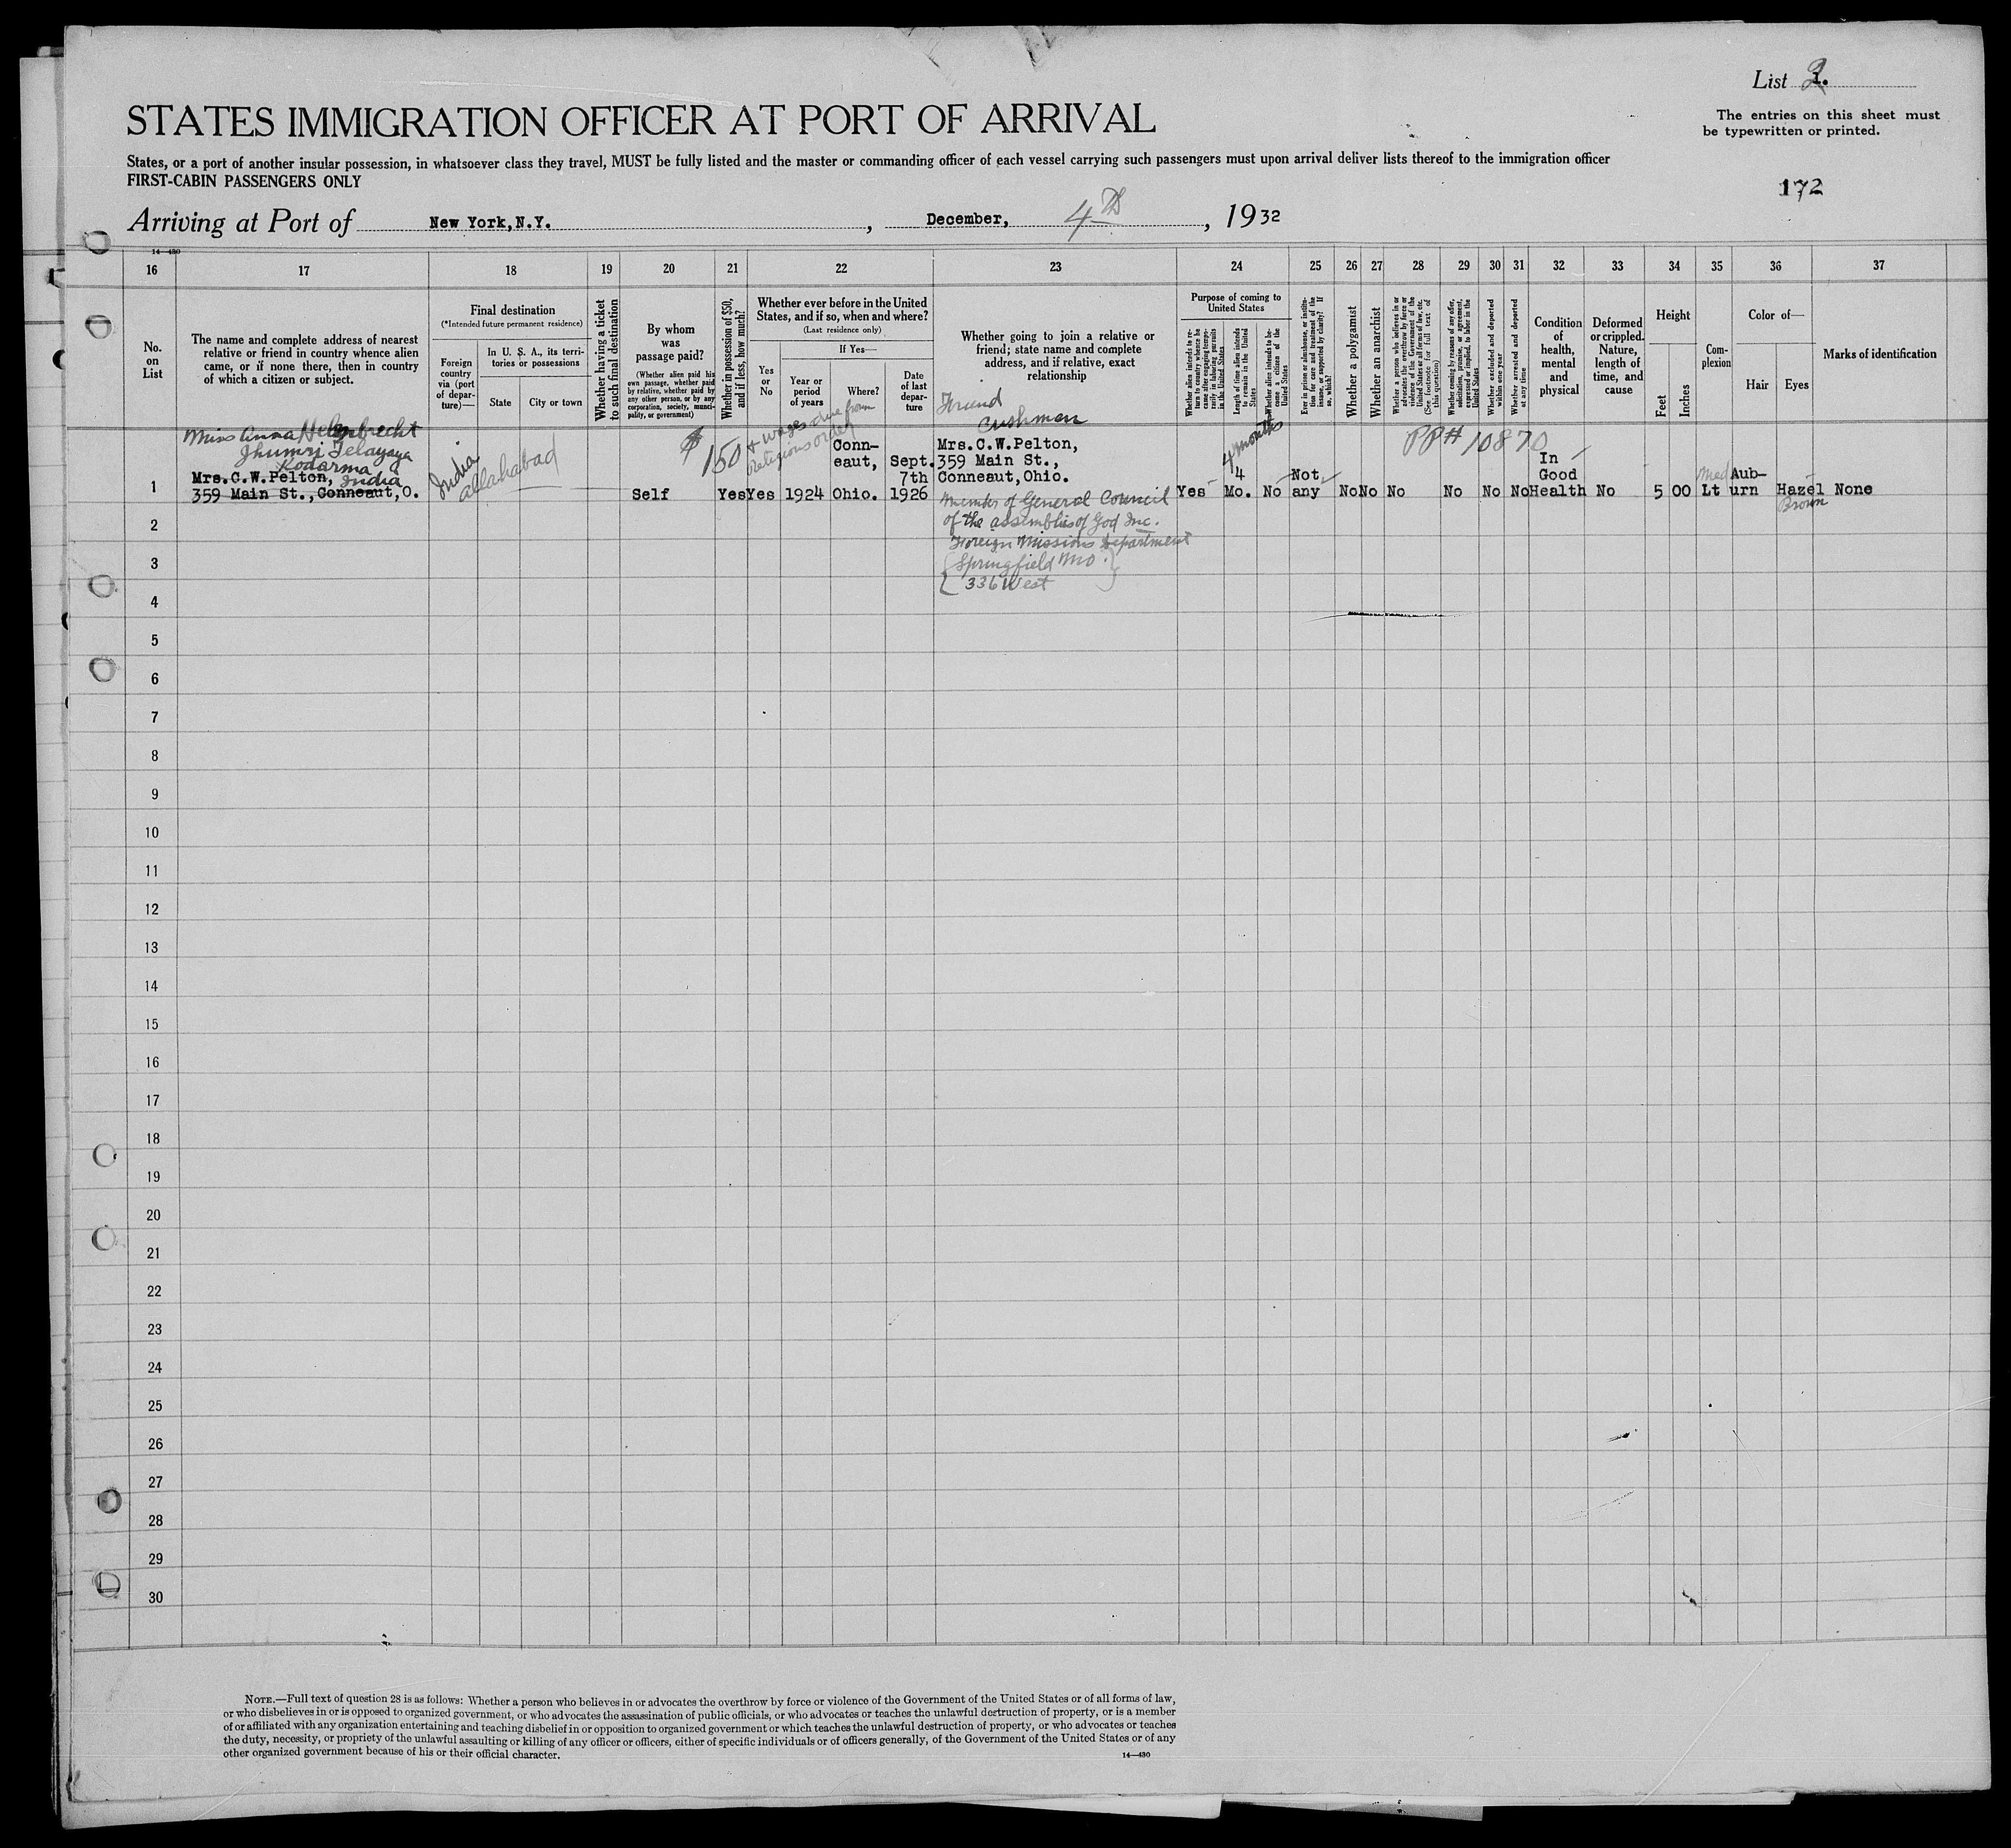 List 2.
STATES IMMIGRATION OFFICER AT PORT OF ARRIVAL
The entries on this sheet must
be typewritten or printed.
States, or a port of another insular possession, in whatsoever class they travel, MUST be fully listed and the master or commanding officer of each vessel carrying such passengers must upon arrival deliver lists thereof to the immigration officer
FIRST-CABIN PASSENGERS ONLY
172
Arriving at Port of New York,N.Y., December, 4th, 1932
14—430
16 17 18 19 20 21 22 23 24 25 26 27 28 29 30 31 32 33 34 35 36 37
No.
on
List
The name and complete address of nearest
relative or friend in country whence alien
came, or if none there, then in country
of which a citizen or subject.
Final destination
(*Intended future permanent residence)
Foreign
country
via (port
of depar-
ture)—
In U. S. A., its terri-
tories or possessions
State
City or town
Whether having a ticket
to such final destination
By whom
was
passage paid?
(Whether alien paid his
own passage, whether paid
by relative, whether paid by
any other person, or by any
corporation, society, munici-
pality, or government)
Whether in possession of $50,
and if less, how much?
Whether ever before in the United
States, and if so, when and where?
(Last residence only)
Yes
or
No
If Yes—
Year or
period
of years
Where?
Date
of last
depar-
ture
Whether going to join a relative or
friend; state name and complete
address, and if relative, exact
relationship
Purpose of coming to
United States
Whether alien intends to re-
turn to country whence he
came after engaging tempo-
rarily in laboring pursuits
in the United States
Length of time alien intends
to remain in the United
States
Whether alien intends to be-
come a citizen of the
United States
Ever in prison or almshouse, or institu-
tion for care and treatment of the
insane, or supported by charity? If
so, which?
Whether a polygamist
Whether an anarchist
Whether a person who believes in or
advocates the overthrow by force or
violence of the Government of the
United States or all forms of law, etc.
(See footnote for full text of
this question)
Whether coming by reasons of any offer,
solicitation, promise, or agreement,
expressed or implied, to labor in the
United States
Whether excluded and deported
within one year
Whether arrested and deported
at any time
Condition
of
health,
mental
and
physical
Deformed
or crippled.
Nature,
length of
time, and
cause
Height
Feet
Inches
Com-
plexion
Color of—
Hair
Eyes
Marks of identification
Miss Anna Helmbrecht
Jhumri Telayaya
Kodarma
India
Mrs.C.W.Pelton,
359 Main St.,Conneaut,O.
India
Allahabad
$150 + wages due from
religious order
Friend
Cushman
Mrs.C.W.Pelton,
359 Main St.,
Conneaut,Ohio.
4 months
PP# 10870
1 Self Yes Yes 1924 Conn-
eaut,
Ohio.
Sept.
7th
1926
Yes 4
Mo. No Not
any No No No No No No In
Good
Health No 5 00 Med
Lt Aub-
urn Hazel None
Brown
Member of General Council
of the assemblies of God Inc.
Foreign Missions Department
Springfield Mo.
336 West
2
3
4
5
6
7
8
9
10
11
12
13
14
15
16
17
18
19
20
21
22
23
24
25
26
27
28
29
30
NOTE.—Full text of question 28 is as follows: Whether a person who believes in or advocates the overthrow by force or violence of the Government of the United States or of all forms of law,
or who disbelieves in or is opposed to organized government, or who advocates the assassination of public officials, or who advocates or teaches the unlawful destruction of property, or is a member
of or affiliated with any organization entertaining and teaching disbelief in or opposition to organized government or which teaches the unlawful destruction of property, or who advocates or teaches
the duty, necessity, or propriety of the unlawful assaulting or killing of any officer or officers, either of specific individuals or of officers generally, of the Government of the United States or of any
other organized government because of his or their official character.
14—430